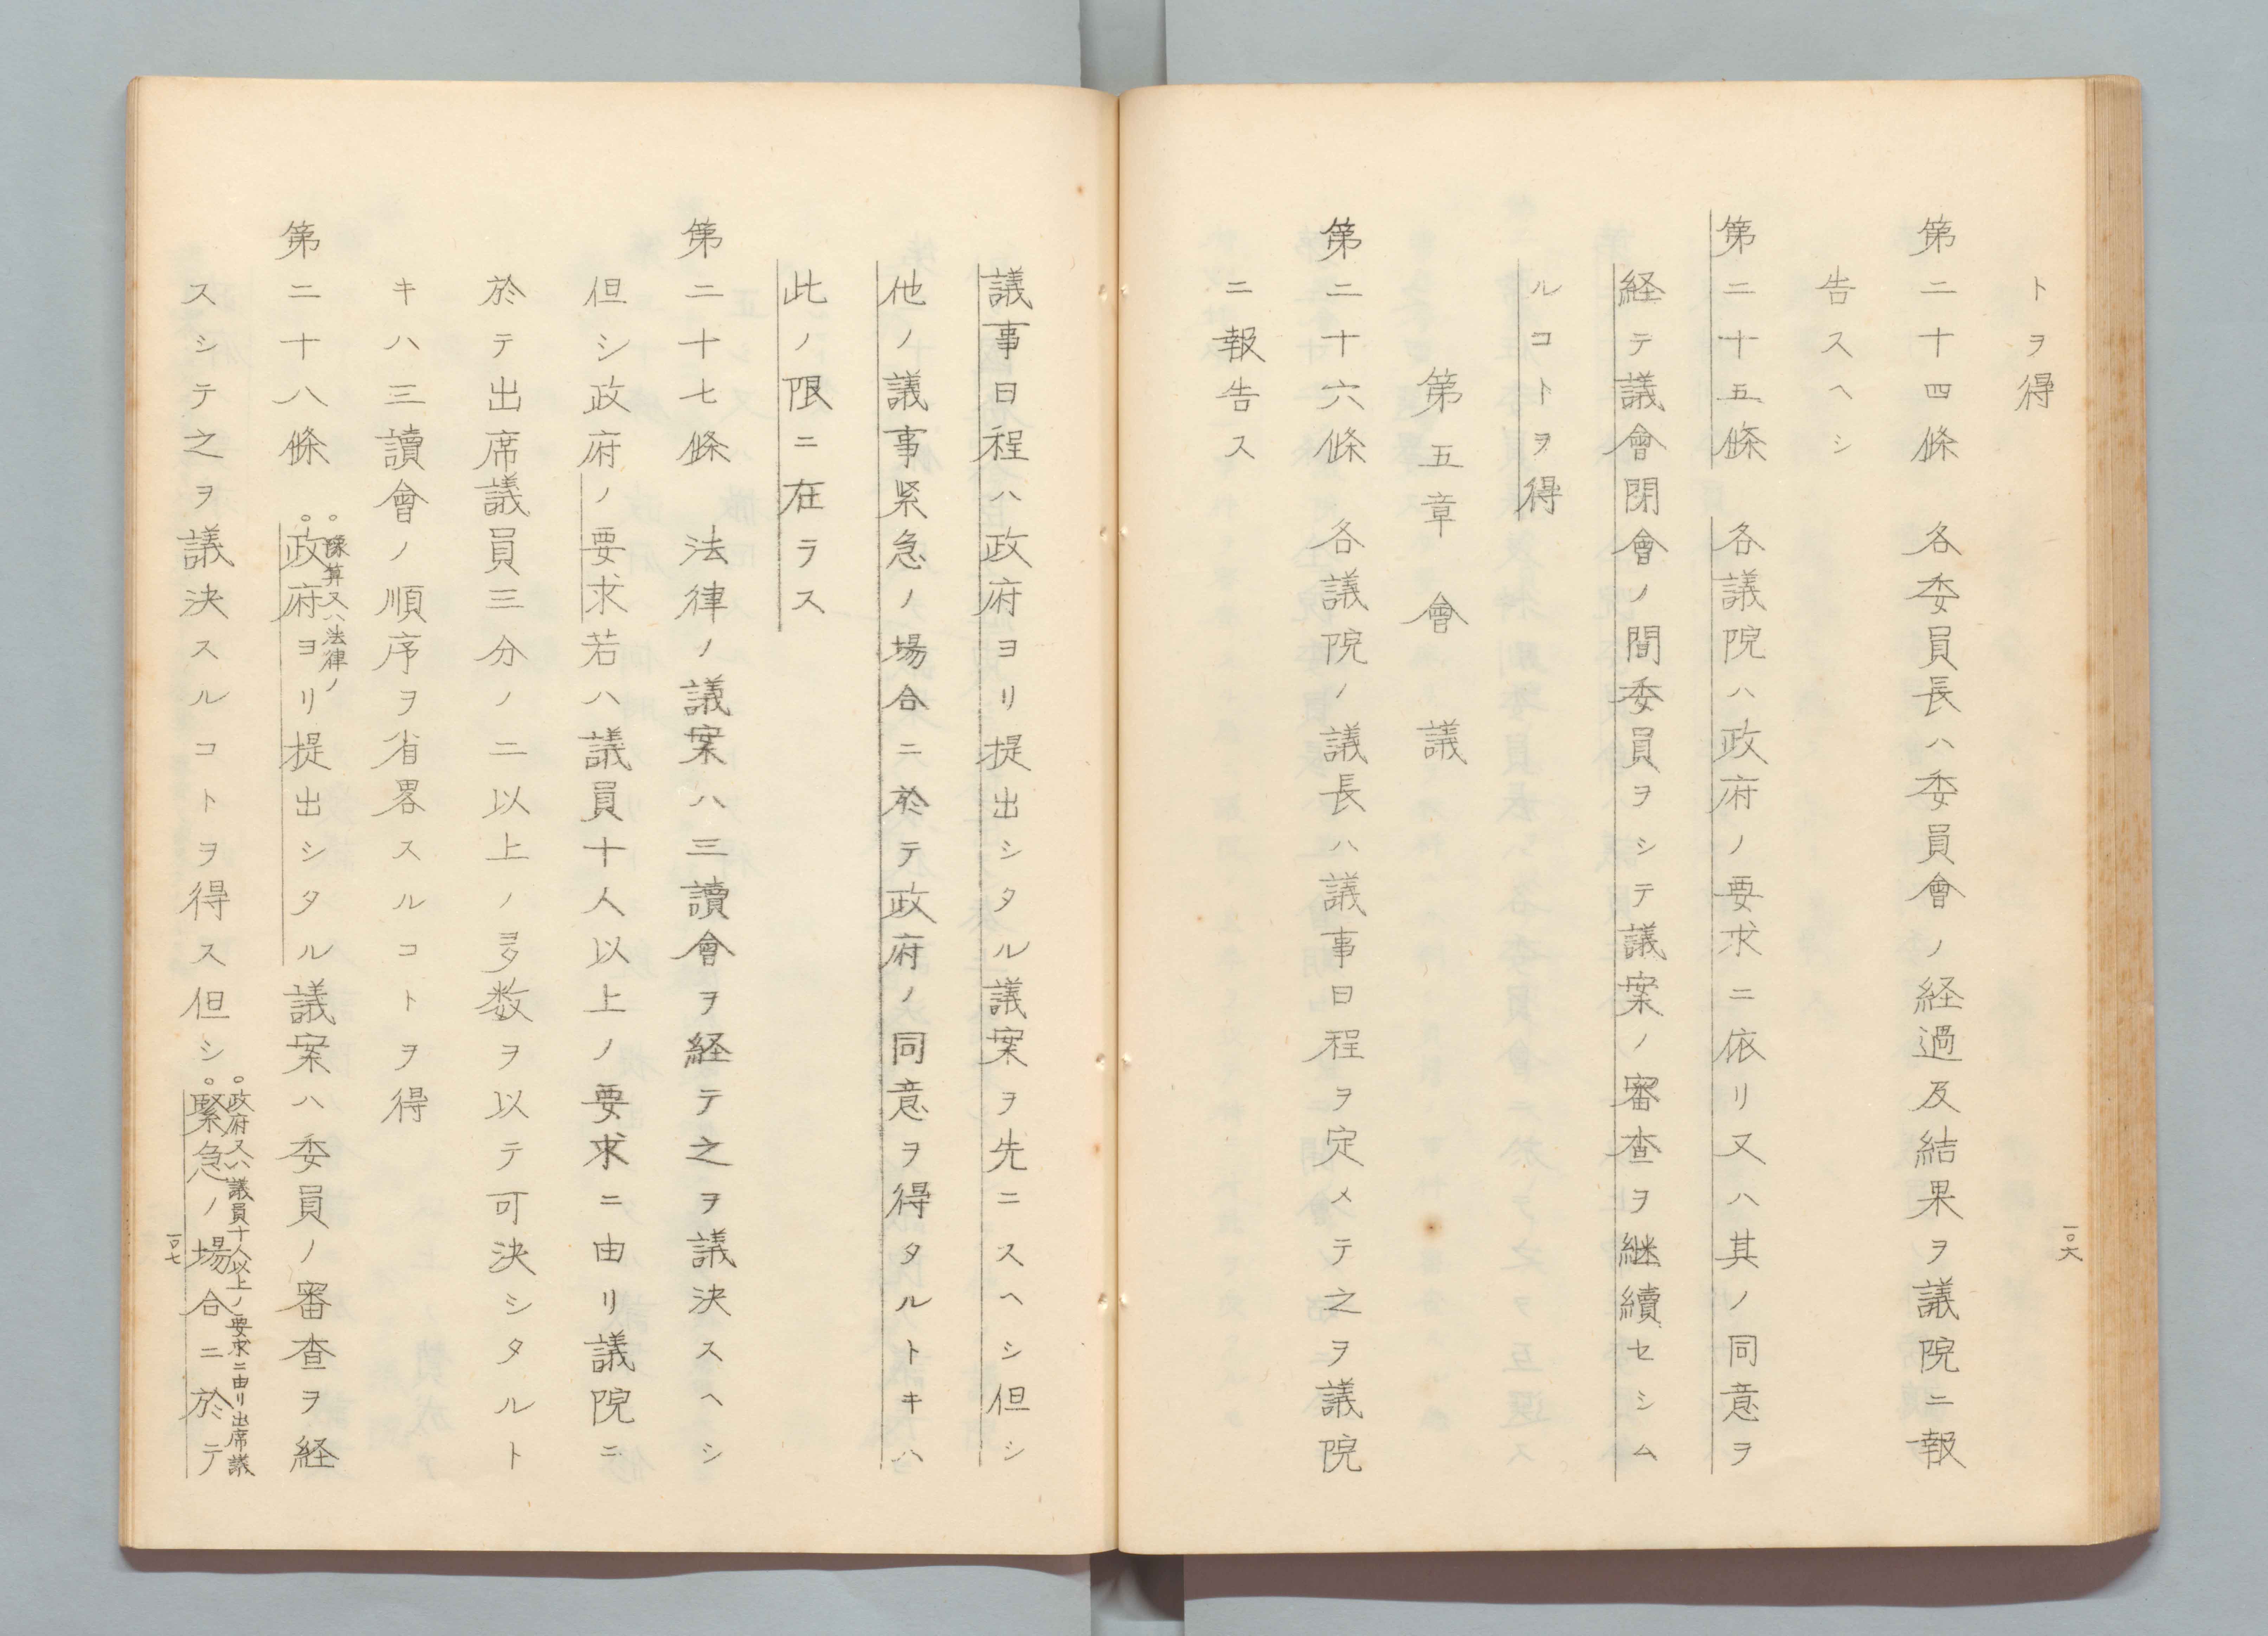 トヲ得
第二十四條　各委員長ハ委員會ノ経過及結果ヲ議院ニ報
告スヘシ
第二十五條　各議院ハ政府ノ要求ニ依リ又ハ其ノ同意ヲ
経テ議會閉會ノ間委員ヲシテ議案ノ審査ヲ継續セシム
ルコトヲ得
第五章　會議
第二十六條　各議院ノ議長ハ議事日程ヲ定メテ之ヲ議院
ニ報告ス
一〇六
議事日程ハ政府ヨリ提出シタル議案ヲ先ニスヘシ但シ
他ノ議事緊急ノ場合ニ於テ政府ノ同意ヲ得タルトキハ
此ノ限ニ在ラス
第二十七條　法律ノ議案ハ三讀會ヲ経テ之ヲ議決スヘシ
但シ政府ノ要求若ハ議員十人以上ノ要求ニ由リ議院ニ
於テ出席議員三分ノ二以上ノ多数ヲ以テ可決シタルト
キハ三讀會ノ順序ヲ省畧スルコトヲ得
。豫算又ハ法律ノ
第二十八條　。政府ヨリ提出シタル議案ハ委員ノ審査ヲ経
。政府又ハ議員十人以上ノ要求ニ由リ出席議
スシテ之ヲ議決スルコトヲ得ス但シ。緊急ノ場合ニ於テ
一〇七